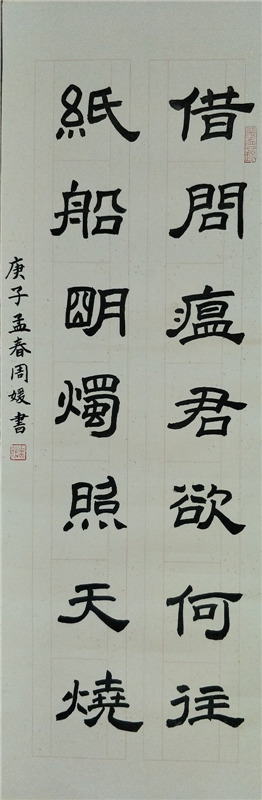 借問瘟君欲何往
紙船明燭照天燒
庚子孟春周媛書